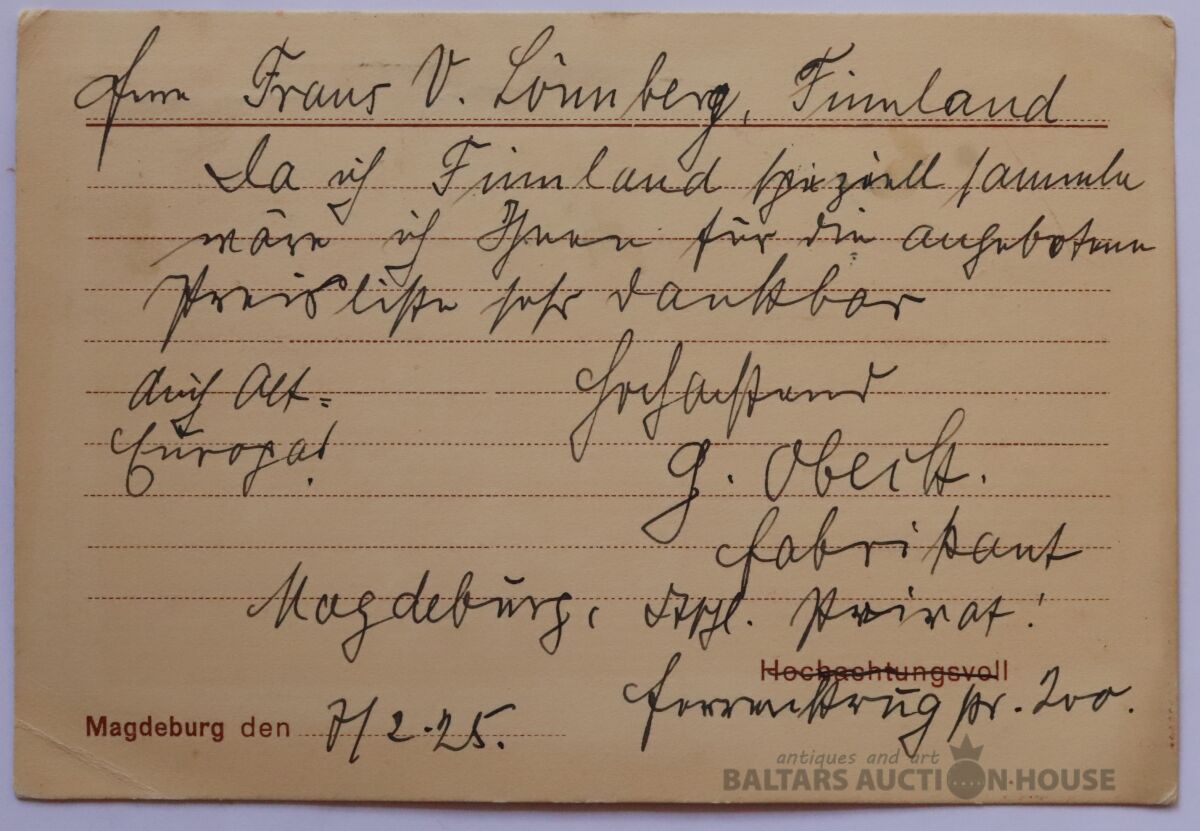 Herrn Frans V. Lönnberg, Finnland
Da ich Finnland speziell sammele
wäre ich Ihnen für die angebotene
Preisliste sehr dankbar
Auch Alt=
Europa!
Hochachtend
G. Obeckt.
Fabrikant
Magdeburg, Privat!
Hochachtungsvoll
str. 200.
Magdeburg den 7/2.25.
antiques and art
BALTARS AUCTION·HOUSE